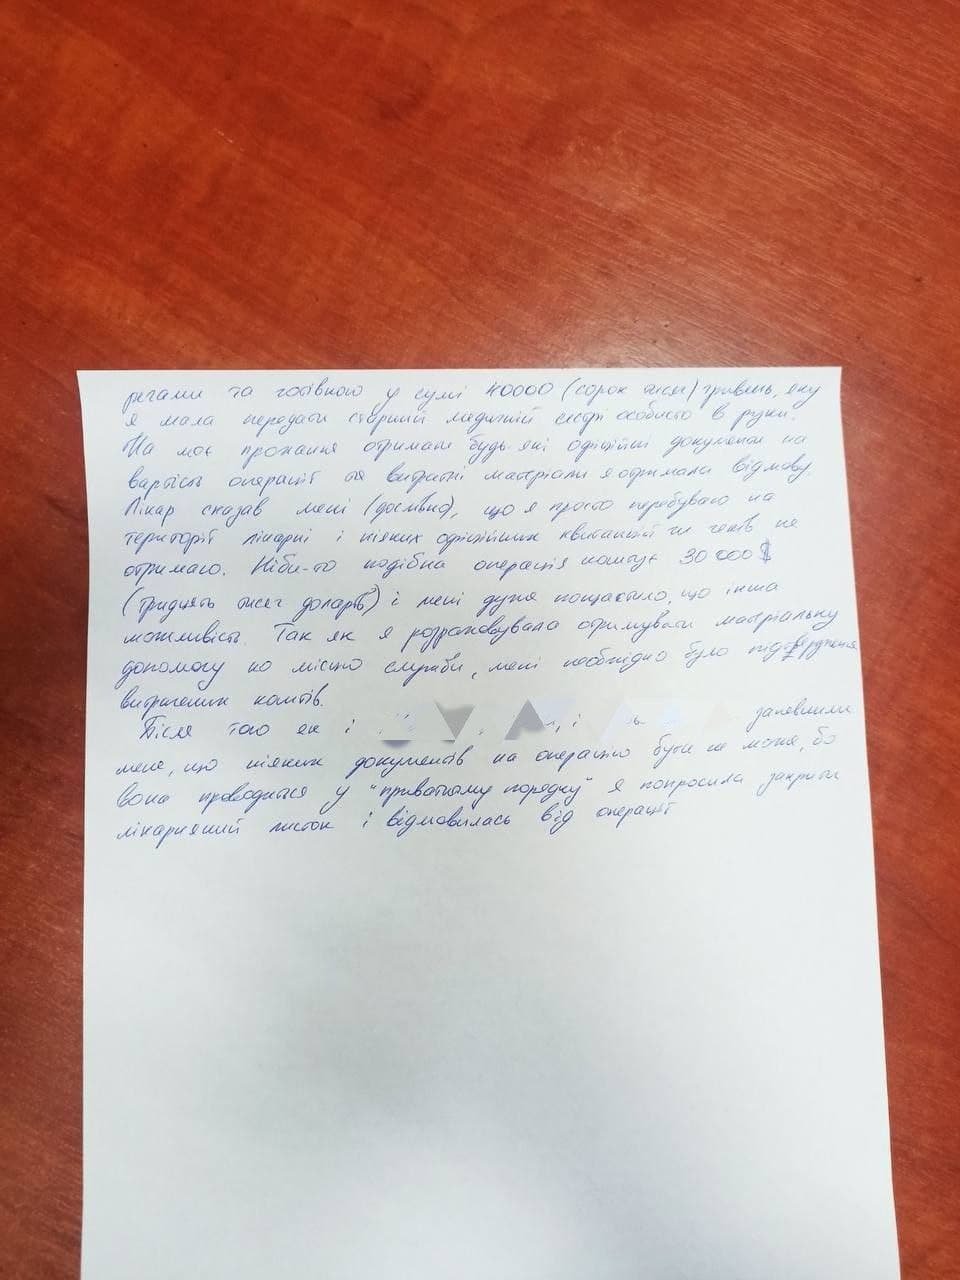 речами та готівкою у сумі 40000 (сорок тисяч) гривень, яку
я мала передати старшій медичній сестрі особисто в руки.
На моє прохання отримати будь-які офіційні документи на
вартість операції та витратні матеріали я отримала відмову.
Лікар сказав мені (дослівно), що я просто перебуваю на
території лікарні і ніяких офіційних квитанцій чи чеків не
отримаю. Ніби-то подібна операція коштує 30 000 $
(тридцять тисяч доларів) і мені дуже пощастило, що інша
можливість. Так як я розраховувала отримувати матеріальну
допомогу по місцю служби, мені необхідно було підтвердження
витрачених коштів.
Після того як і запевнили
мене, що ніяких документів на операцію бути не може, бо
вона проводиться у "приватному порядку" я попросила закрити
лікарняний листок і відмовилась від операції